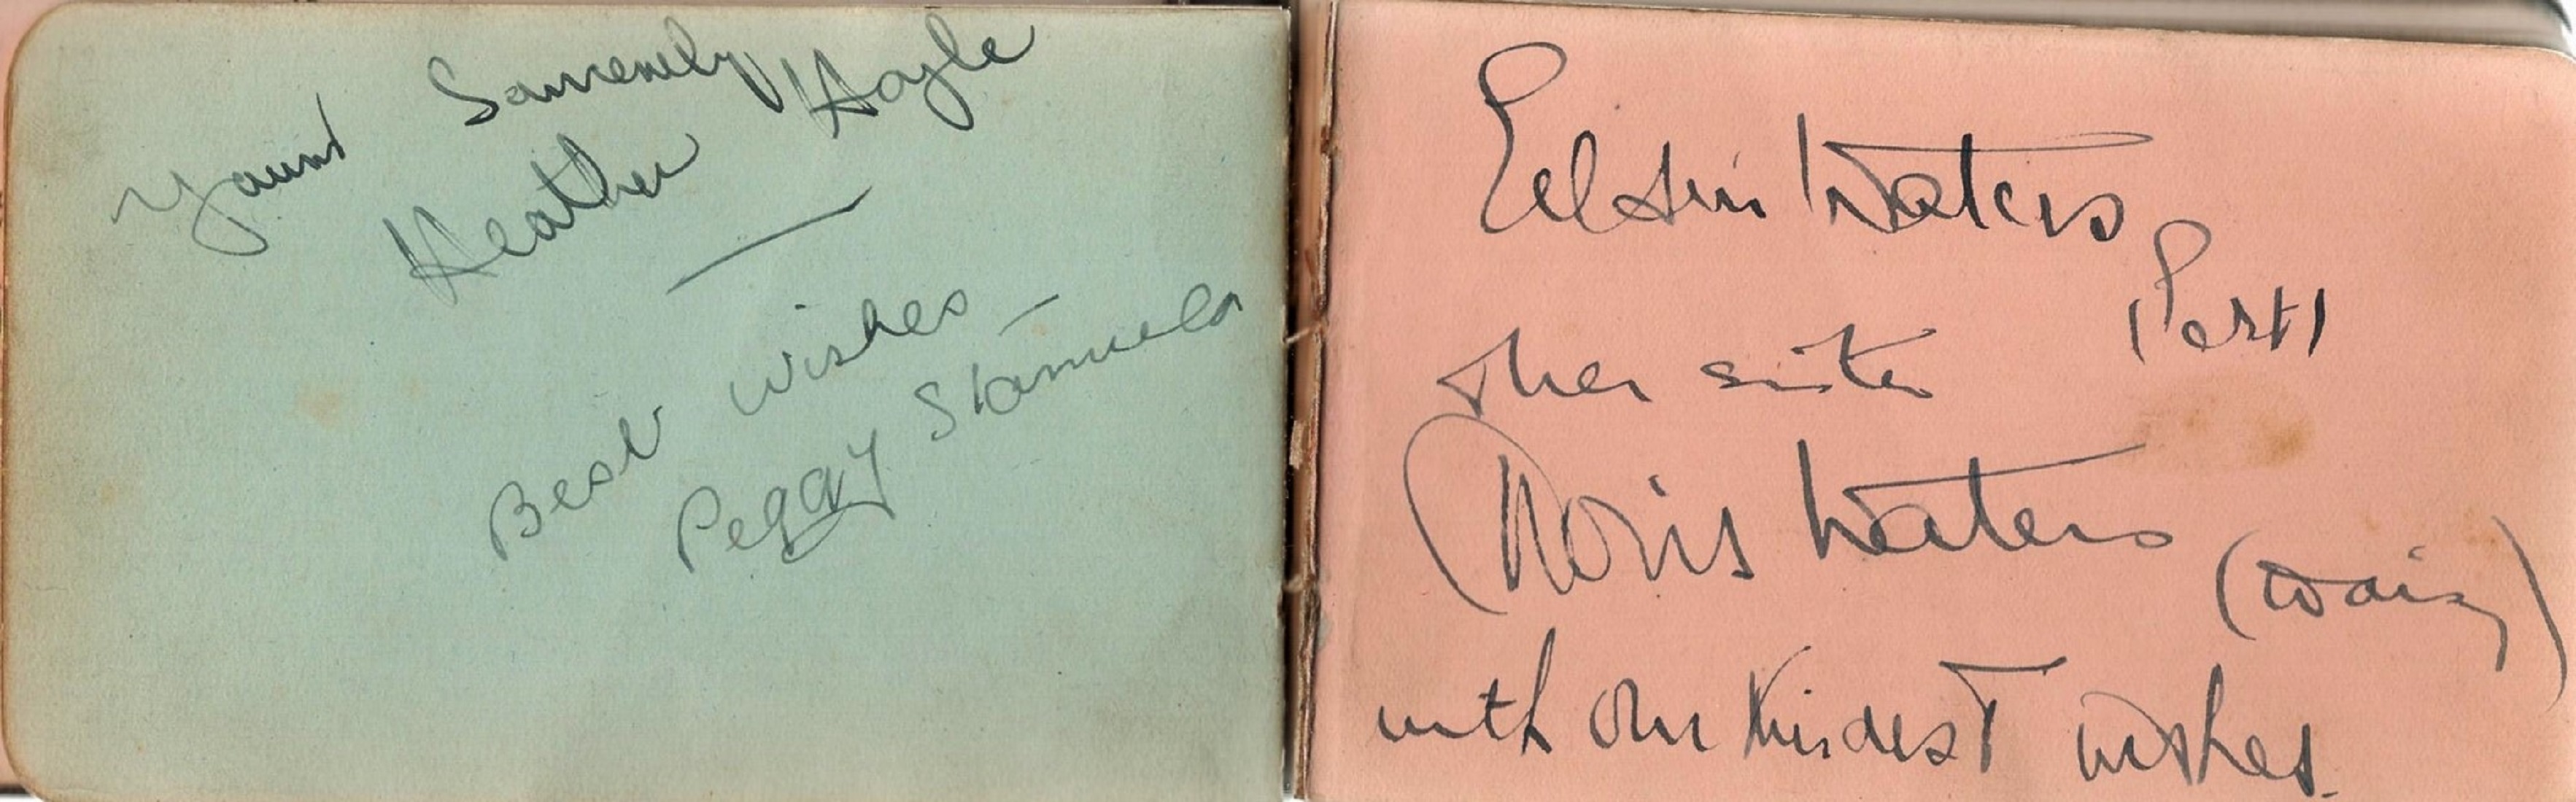 Yours Sincerely
Heather Hoyle
Best wishes
Peggy
Elsie Waters
(Gert)
& her sister
Doris Waters (Daisy)
with our kindest wishes.